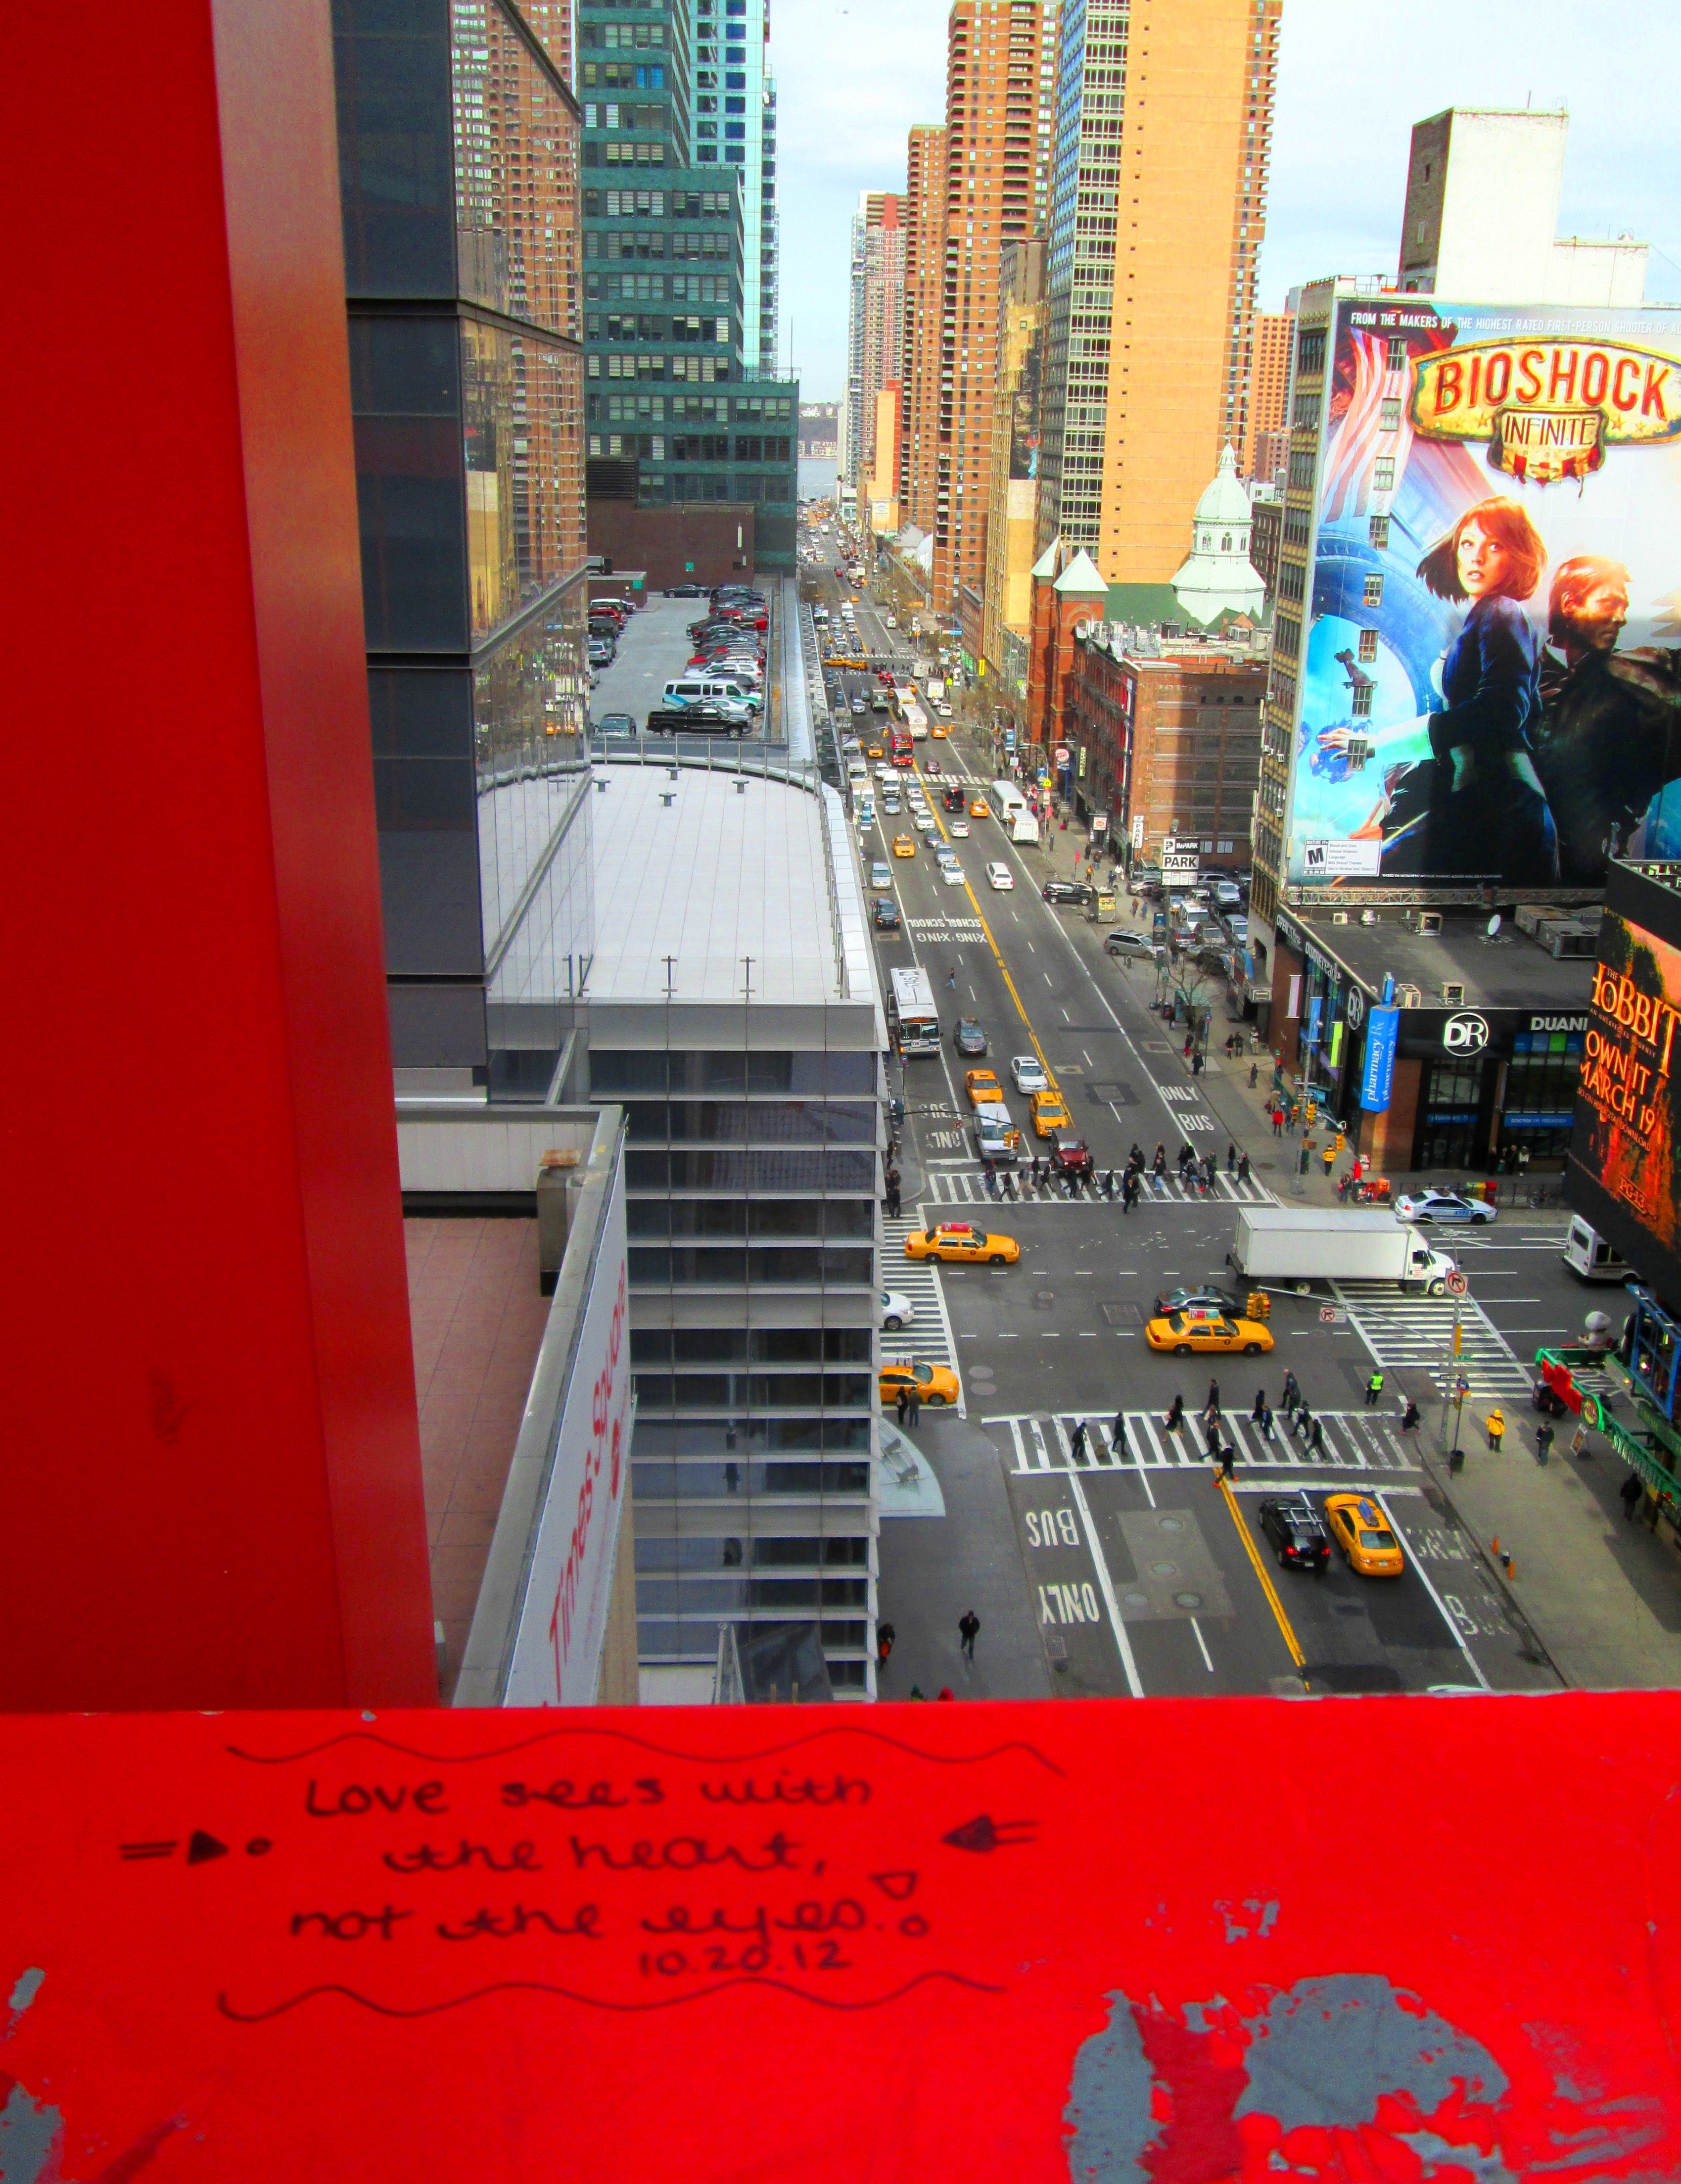 FROM THE MAKERS OF THE HIGHEST RATED FIRST-PERSON SHOOTER OF
BIOSHOCK
INFINITE
M
PARK
SCHOOL SCHOOL
XING XING
DR
DUAN
pharmacy
THE
HOBBIT
OWN IT
MARCH 19
ONLY
BUS
BUS
ONLY
BUS
ONLY
Times Square
Love sees with
the heart,
not the eyes.
10.20.12